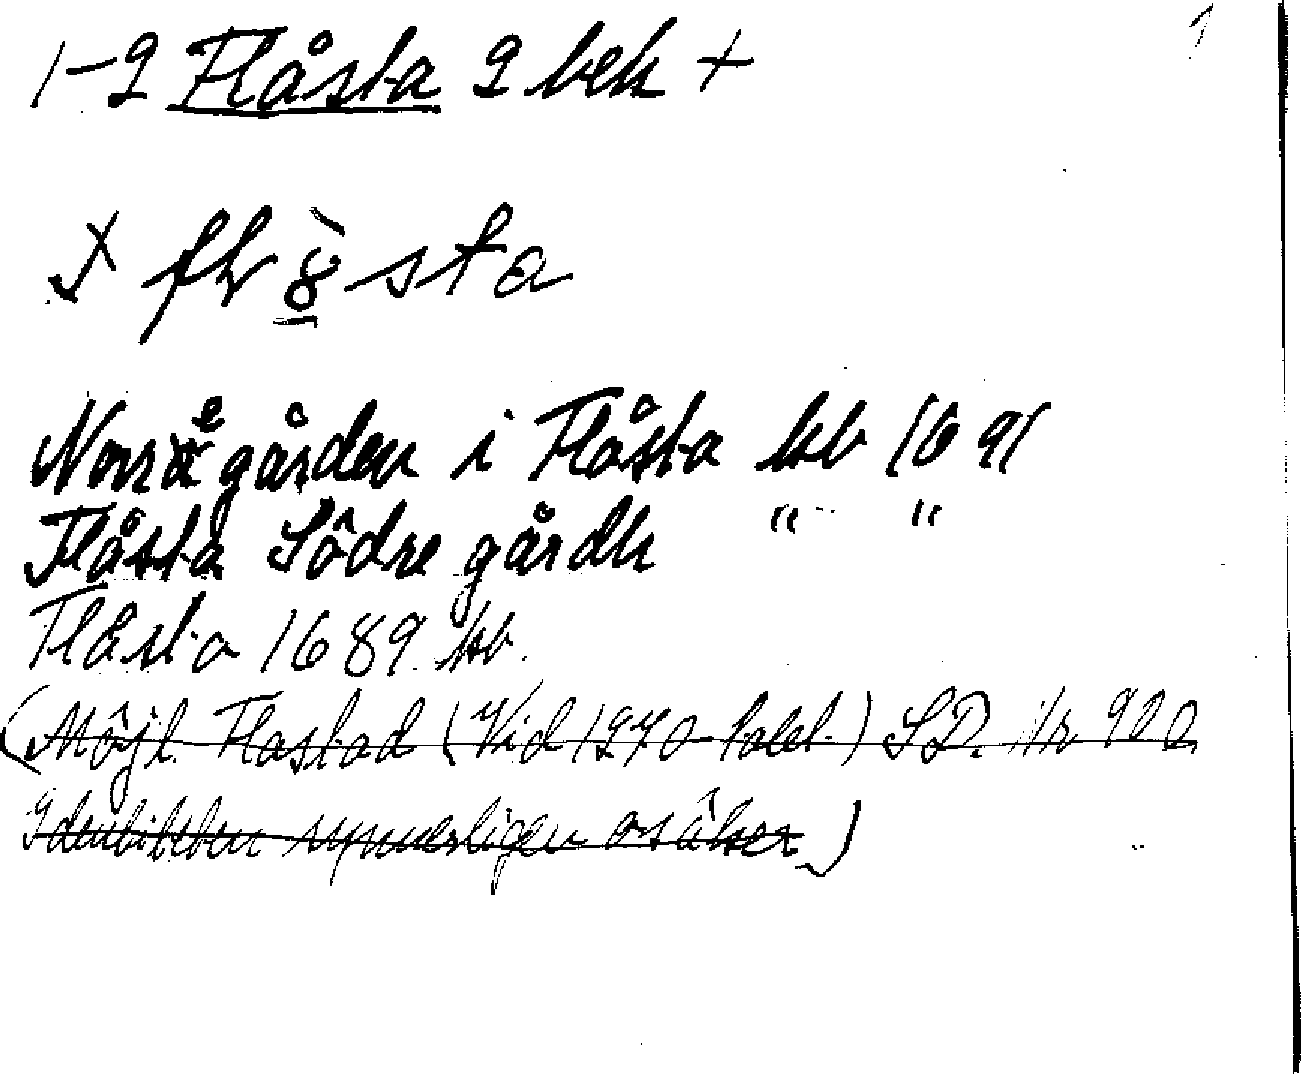 1
1-2 Flåsta 2 bek +
Norrågården i Flåsta kb 1691
Flåsta Södre gårdh " "
Flåsta 1689 kb.
(Möjl. Flastad (Vid 1270-talet) SD. Nr 900
Identiteten synnerligen osäker)